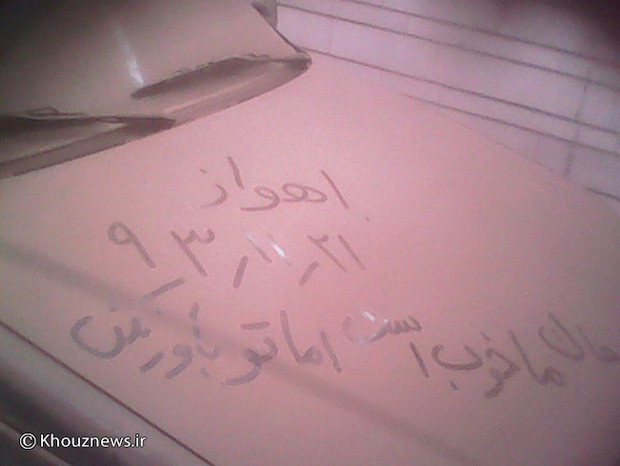 اهواز
۹۳/۱۱/۲۱
حال ما خوب است اما تو باور نکن
© Khouznews.ir